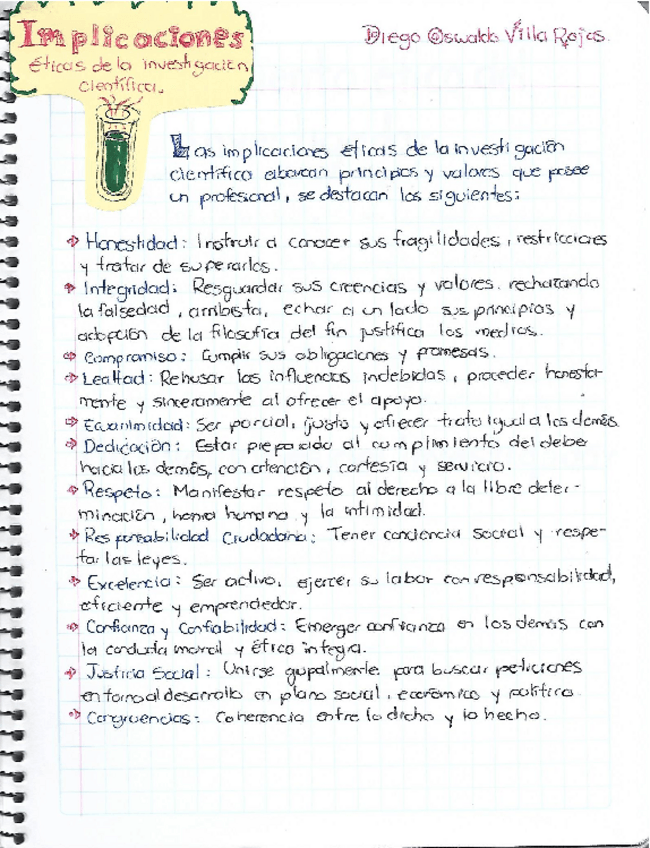 Implicaciones
éticas de la investigación
científica.
Diego Oswaldo Villa Rojas.
Las implicaciones éticas de la investigación
científica abarcan principios y valores que posee
un profesional, se destacan los siguientes:
Honestidad: Instruir a conocer sus fragilidades, restricciones
y tratar de superarlos.
Integridad: Resguardar sus creencias y valores. rechazando
la falsedad, arribista, echar a un lado sus principios y
adopción de la filosofía del fin justifica los medios.
Compromiso: Cumplir sus obligaciones y promesas.
Lealtad: Rehusar las influencias indebidas, proceder honesta-
mente y sinceramente al ofrecer el apoyo.
Ecuanimidad: Ser parcial, justo y ofrecer trato igual a los demás.
Dedicación: Estar preparado al cumplimiento del deber
hacia los demás, con atención, cortesía y servicio.
Respeto: Manifestar respeto al derecho a la libre deter-
minación, honra humana y la intimidad.
Responsabilidad Ciudadana: Tener conciencia social y respe-
tar las leyes.
Excelencia: Ser activo, ejercer su labor con responsabilidad,
eficiente y emprendedor.
Confianza y Confiabilidad: Emerger confianza en los demás con
la conducta moral y ética integra.
Justicia Social: Unirse gupalmente para buscar peticiones
en torno al desarrollo en plano social, económico y político
Congruencias: Coherencia entre lo dicho y lo hecho.